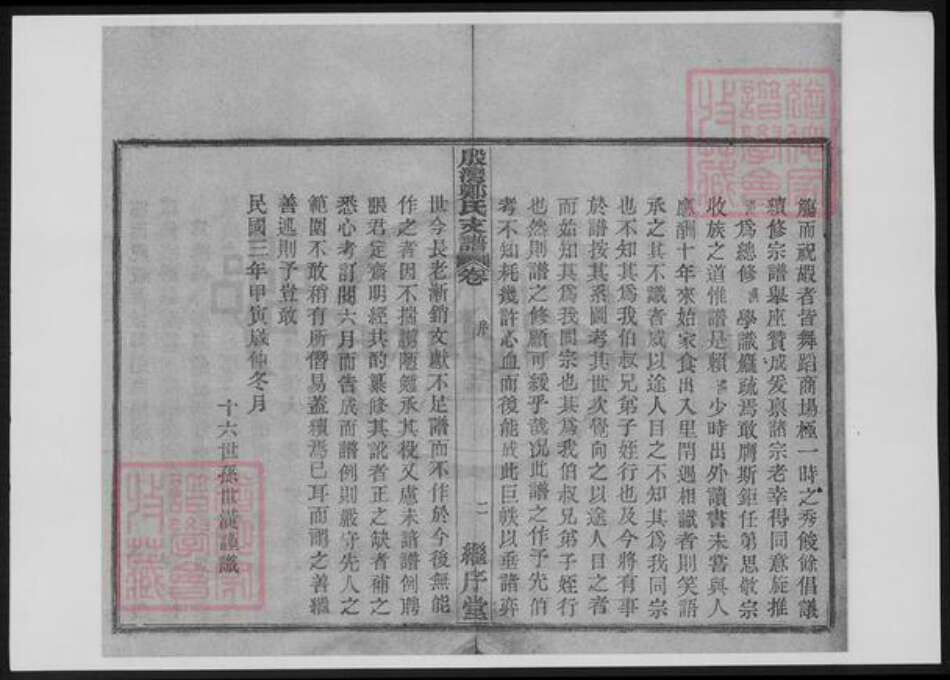 觴而祝嘏者皆舞蹈商場極一時之秀餕餘倡議
續修宗譜舉座贊成爰禀諸宗老幸得同意旋推
爲總修 學識觕疏焉敢膺斯鉅任第思敬宗
收族之道惟譜是賴 少時出外讀書未嘗與人
應酬十年來始家食出入里閈遇相識者則笑語
承之其不識者咸以途人目之不知其爲我同宗
也不知其爲我伯叔兄弟子姪行也及今將有事
於譜按其系圖考其世次覺向之以途人目之者
而始知其爲我同宗也其爲我伯叔兄弟子姪行
也然則譜之修顧可緩乎哉况此譜之作予先伯
考不知耗幾許心血而後能成此巨帙以垂諸弈
殷灣鄭氏支譜 卷 序 二 繼序堂
世今長老漸銷文獻不足譜而不作於今後無能
作之者因不揣譾陋勉承其役又慮未諳譜例聘
張君定齋明經共酌纂修其訛者正之缺者補之
悉心考訂閱六月而告成而譜例則嚴守先人之
範圍不敢稍有所僭易蓋續焉已耳而謂之善繼
善述則予豈敢
民國三年甲寅歲仲冬月
十六世孫世 謹識